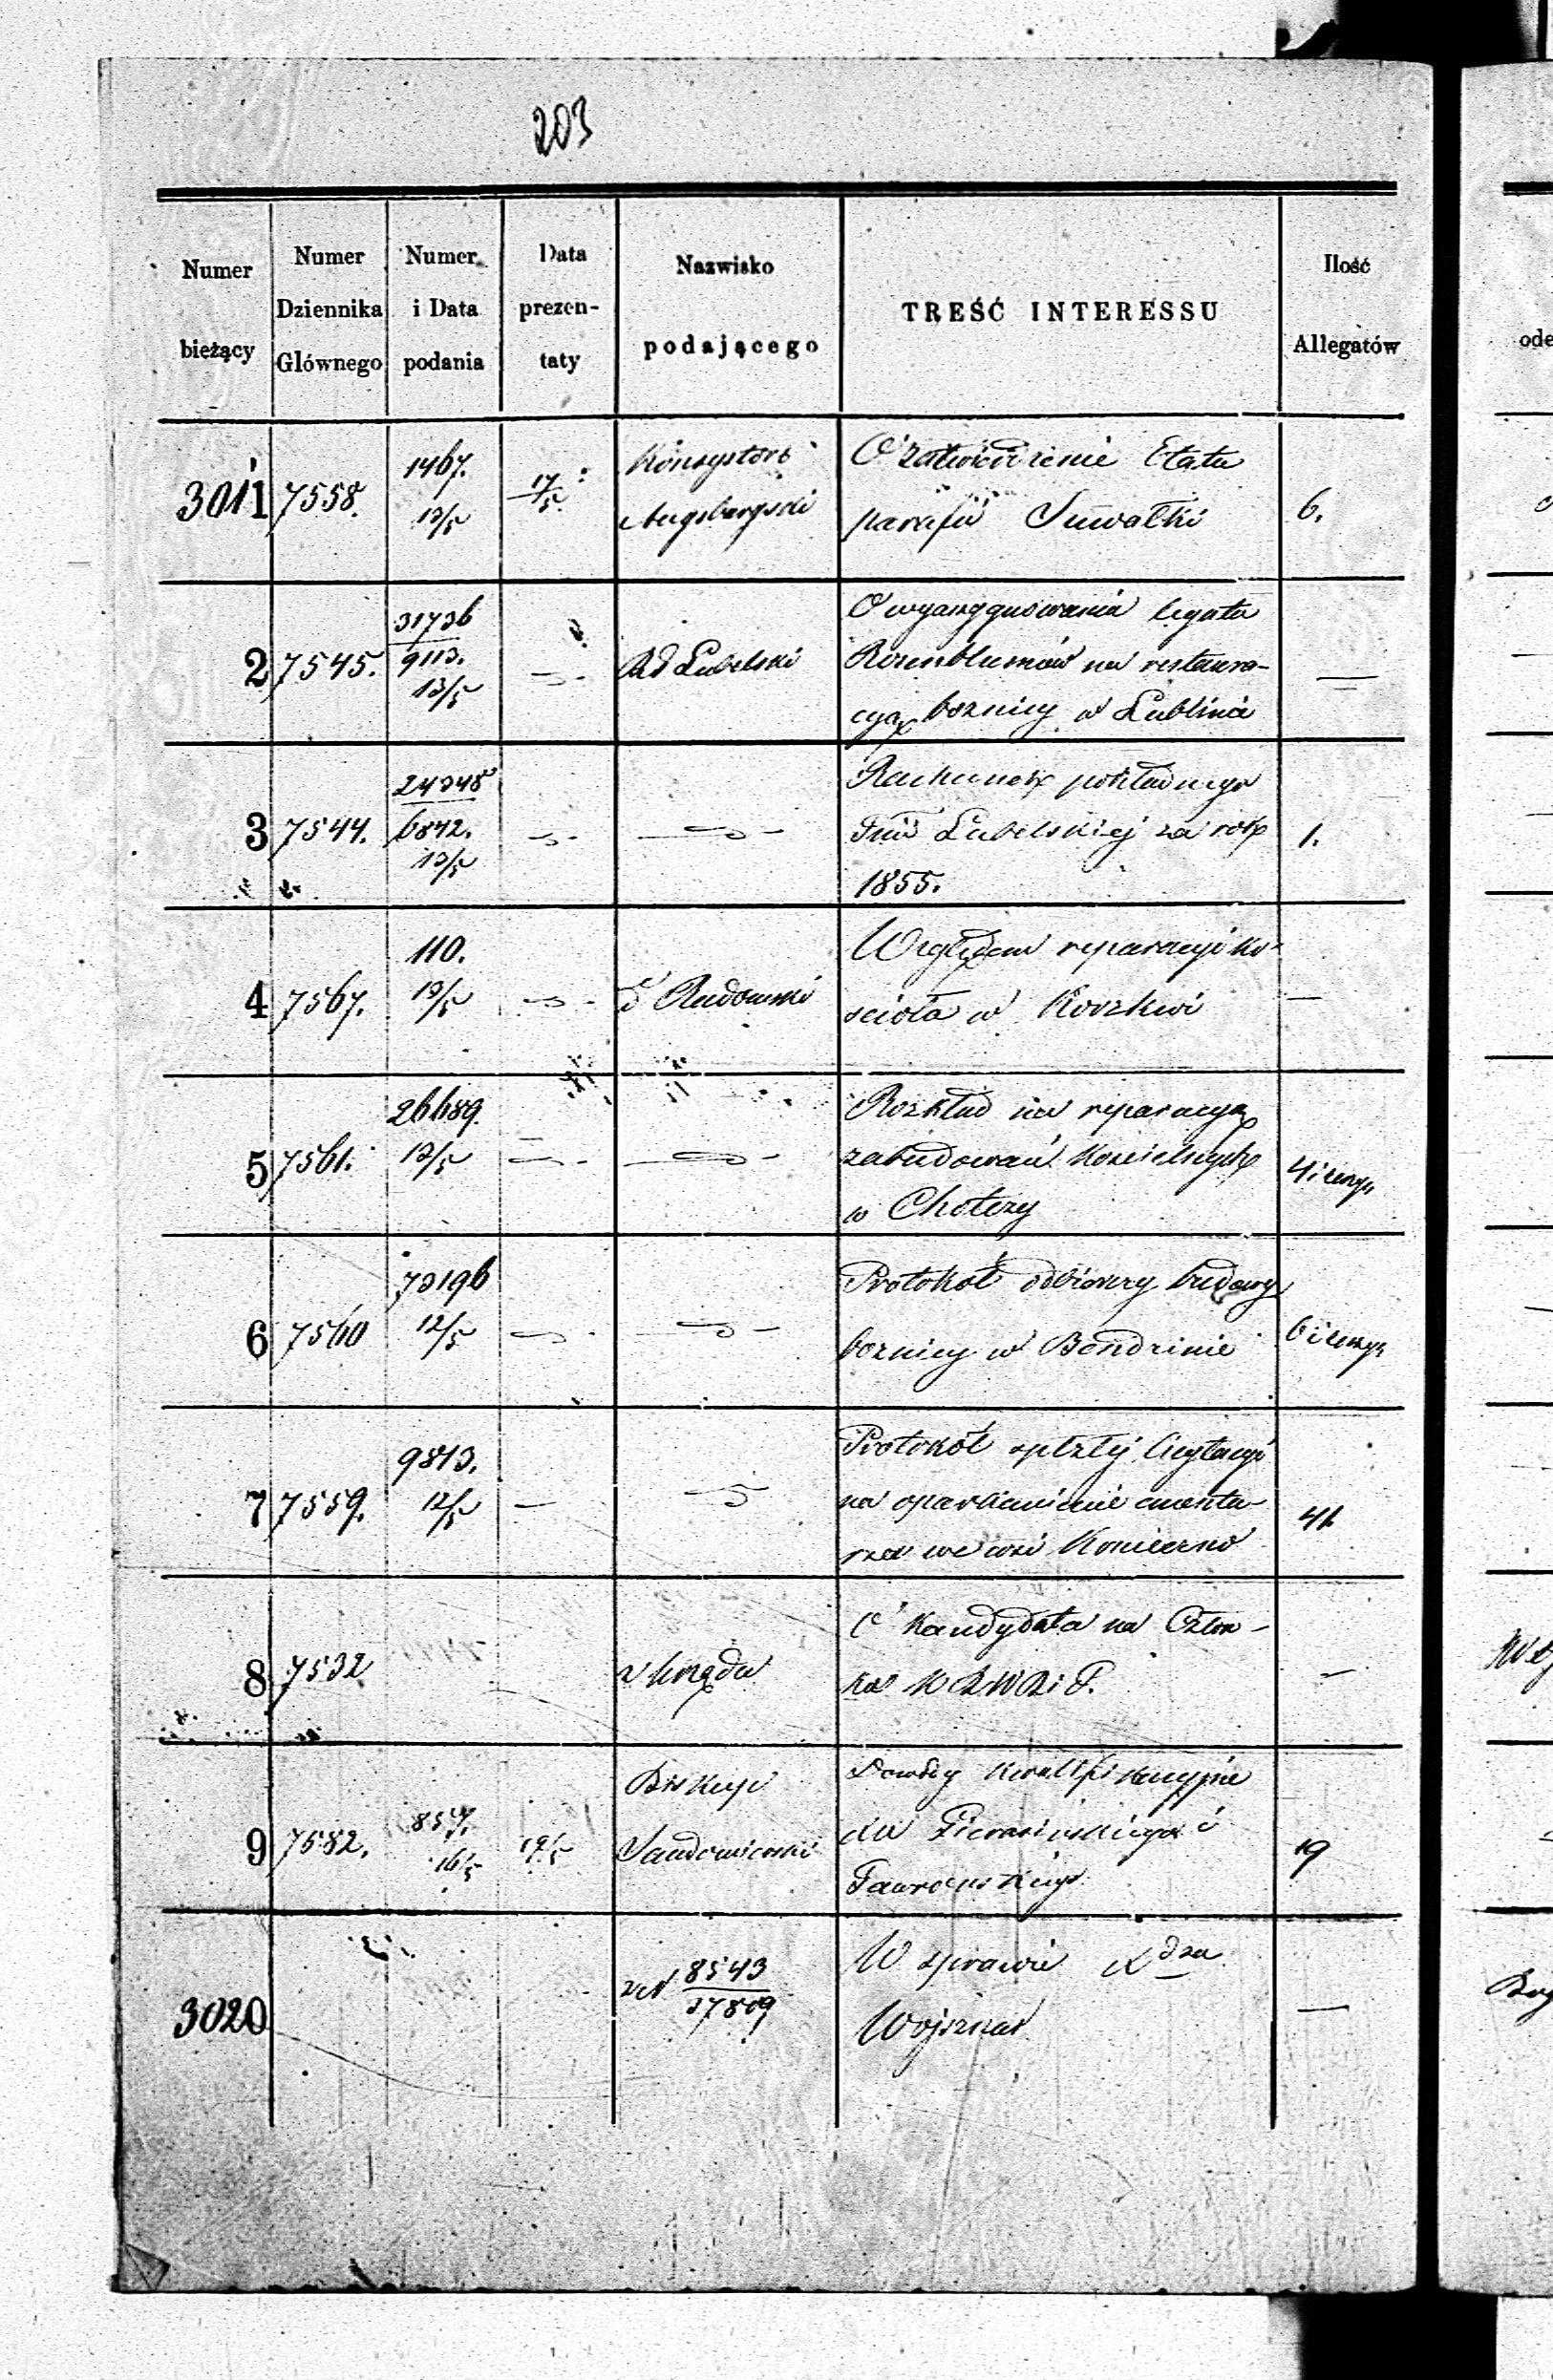 203
Numer bieżący | Numer Dziennika Głównego | Numer i Data podania | Data prezentaty | Nazwisko podającego | TREŚĆ INTERESSU | Ilość Allegatów
3011 | 7558. | 1467. 13/5 | 17/5 | Konsystorz Augsburgski | O zatwierdzenie Etatu
parafii Suwałki | 6.
2 | 7545. | 31736/9113. 13/5 | Rd Lubelski | O wyanggusowania legatu
Rosenblumów na restaura-
cyą bożnicy w Lublinie | —
3 | 7544. | 24348/6842. 13/5 | Rachunek pokładnego
Gnii Lubelskiej za rok
1855. | 1.
4 | 7567. | 110. 13/5 | d Radomski | Względem reparacyi ko-
ścioła w | —
5 | 7561. | 26689. 13/5 | Rozkład na reparacyą
zabudowań kościelnych
w Chotczy | 4
6 | 7560 | 73196 12/5 | Protokół odbiorczy budowy
bożnicy w Bendzinie | 6
7 | 7559. | 9813. 12/5 | — | Protokół spełzłej licytacyi
na oparkanienie cmenta-
rza we wsi Konieczno | 41
8 | 7532 | z Urzędu | O kandydata na Człon-
ka K R W R i P. | —
9 | 7682. | 857. 16/5 | 19/5 | Biskup Sandomierski | Dowody kwalifikacyjne
dla i | 19
3020 | z N 8543/37809 | W sprawie Xdza
Wojsznar | —